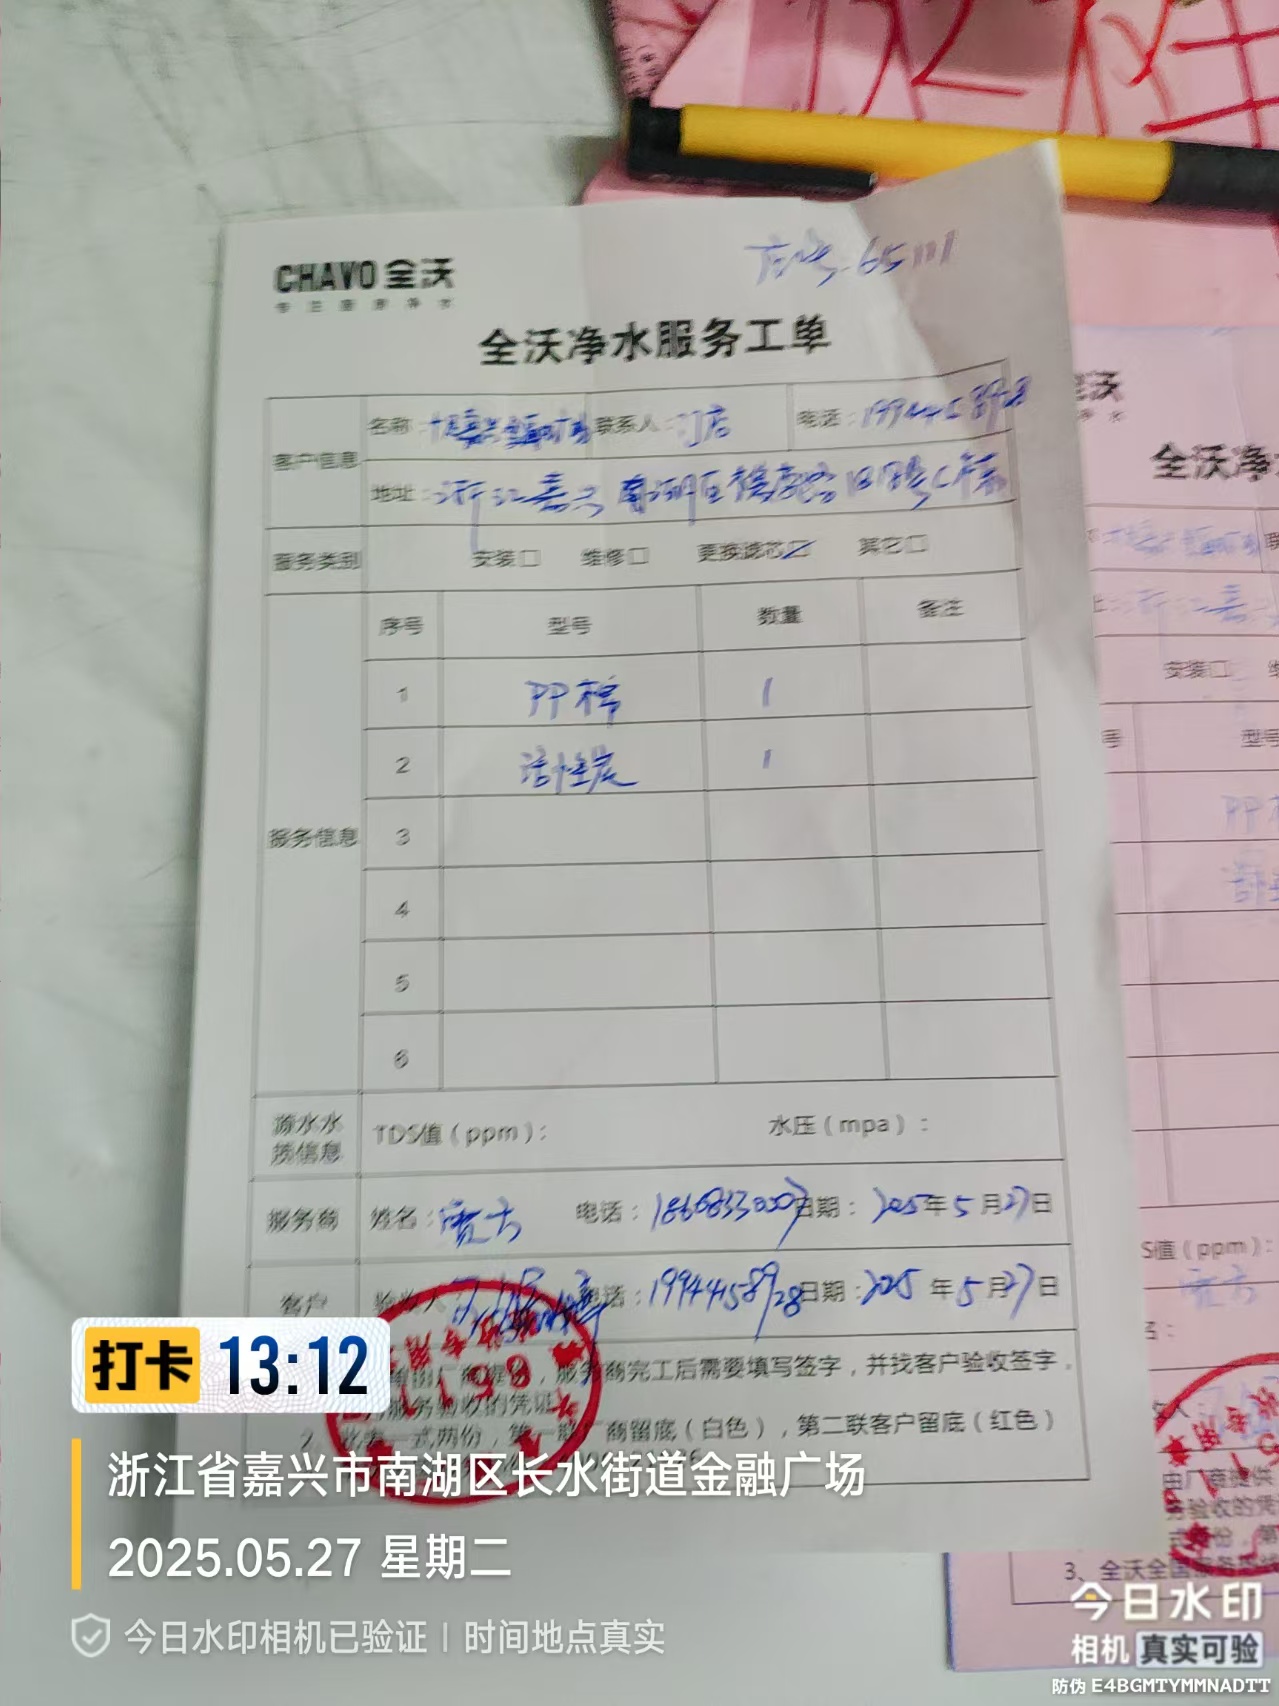 CHAVO 全沃
专注厨房净水
店号-65111
全沃净水服务工单
客户信息
名称: 联系人:门店 电话:
地址:浙江嘉兴南湖区
服务类别 安装□ 维修□ 更换滤芯☑ 其它□
服务信息
序号 型号 数量 备注
1 PP棉 1
2 活性炭 1
3
4
5
6
源水水质信息 TDS值(ppm): 水压(mpa):
服务商 姓名: 电话:18668330007 日期:2025年5月27日
客户 验收人 电话:19944158928 日期:2025年5月27日
服务商完工后需要填写签字,并找客户验收签字.
服务验收的凭证
2、此表一式两份,第一联厂商留底(白色),第二联客户留底(红色)
全沃
全沃净
安装□
型号
S值(ppm):
名:
由厂商提供
3、全沃全国服务热线
打卡 13:12
浙江省嘉兴市南湖区长水街道金融广场
2025.05.27 星期二
今日水印相机已验证 | 时间地点真实
今日水印
相机 真实可验
防伪 E4BGMTYMMNADTT